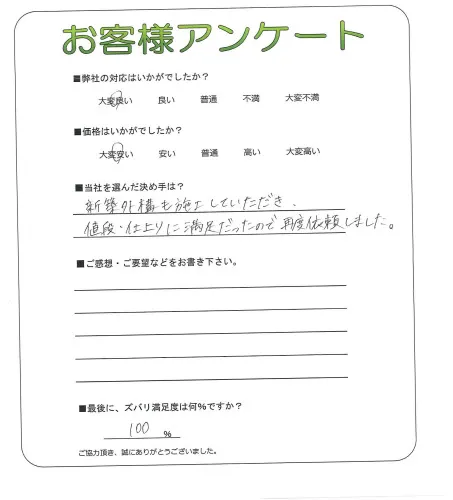 お客様アンケート
■弊社の対応はいかがでしたか？
大変良い 良い 普通 不満 大変不満
■価格はいかがでしたか？
大変安い 安い 普通 高い 大変高い
■当社を選んだ決め手は？
新築外構も施工していただき、
値段・仕上りに満足だったので再度依頼しました。
■ご感想・ご要望などをお書き下さい。
■最後に、ズバリ満足度は何%ですか？
100 %
ご協力頂き、誠にありがとうございました。